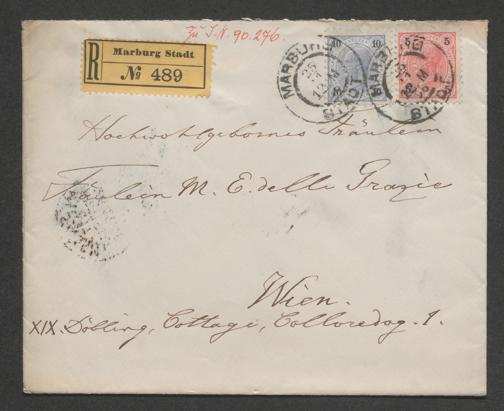 Zu I.N. 90.276.
R
Marburg Stadt
№ 489
10 10
5 5
MARBURG
STADT
MARBURG
STADT
Hochwohlgebornes Fräulein
Fräulein M. E. delle Grazie
Wien.
XIX. Döbling, Cottage, Colloredog. 1.